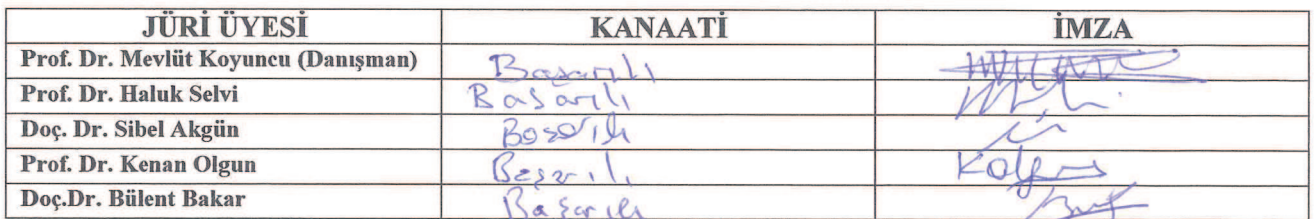 JÜRİ ÜYESİ KANAATİ İMZA
Prof. Dr. Mevlüt Koyuncu (Danışman) Başarılı
Prof. Dr. Haluk Selvi Başarılı
Doç. Dr. Sibel Akgün Başarılı
Prof. Dr. Kenan Olgun Başarılı
Doç.Dr. Bülent Bakar Başarılı